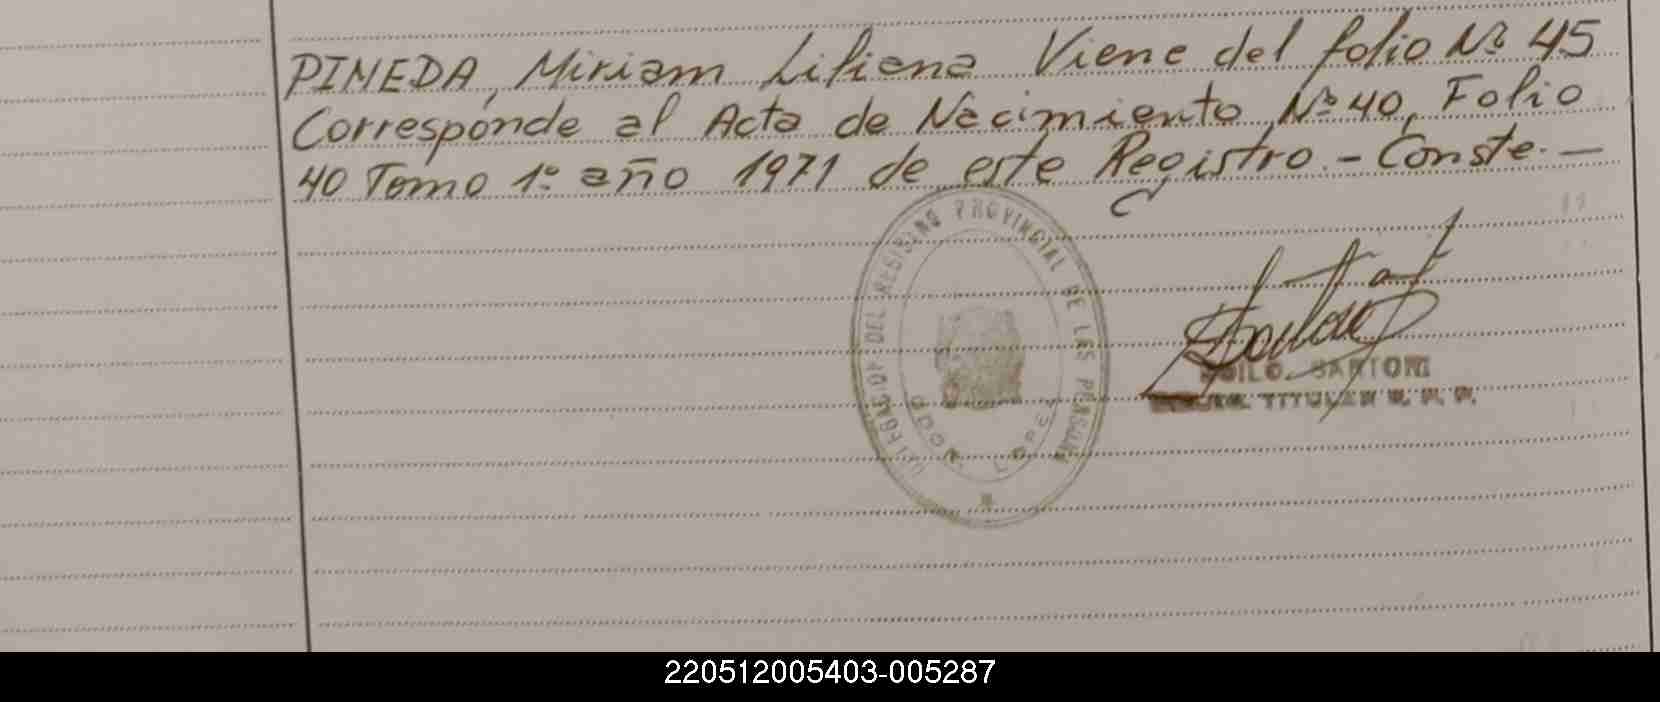 PINEDA, Miriam Liliana Viene del folio Nº 45
Corresponde al Acta de Nacimiento Nº 40, Folio
40 Tomo 1º año 1971 de este Registro.- Conste.-
DELEGACION DEL REGISTRO PROVINCIAL DE LAS PERSONAS
LOPEZ
SARTORI
TITULAR
220512005403-005287